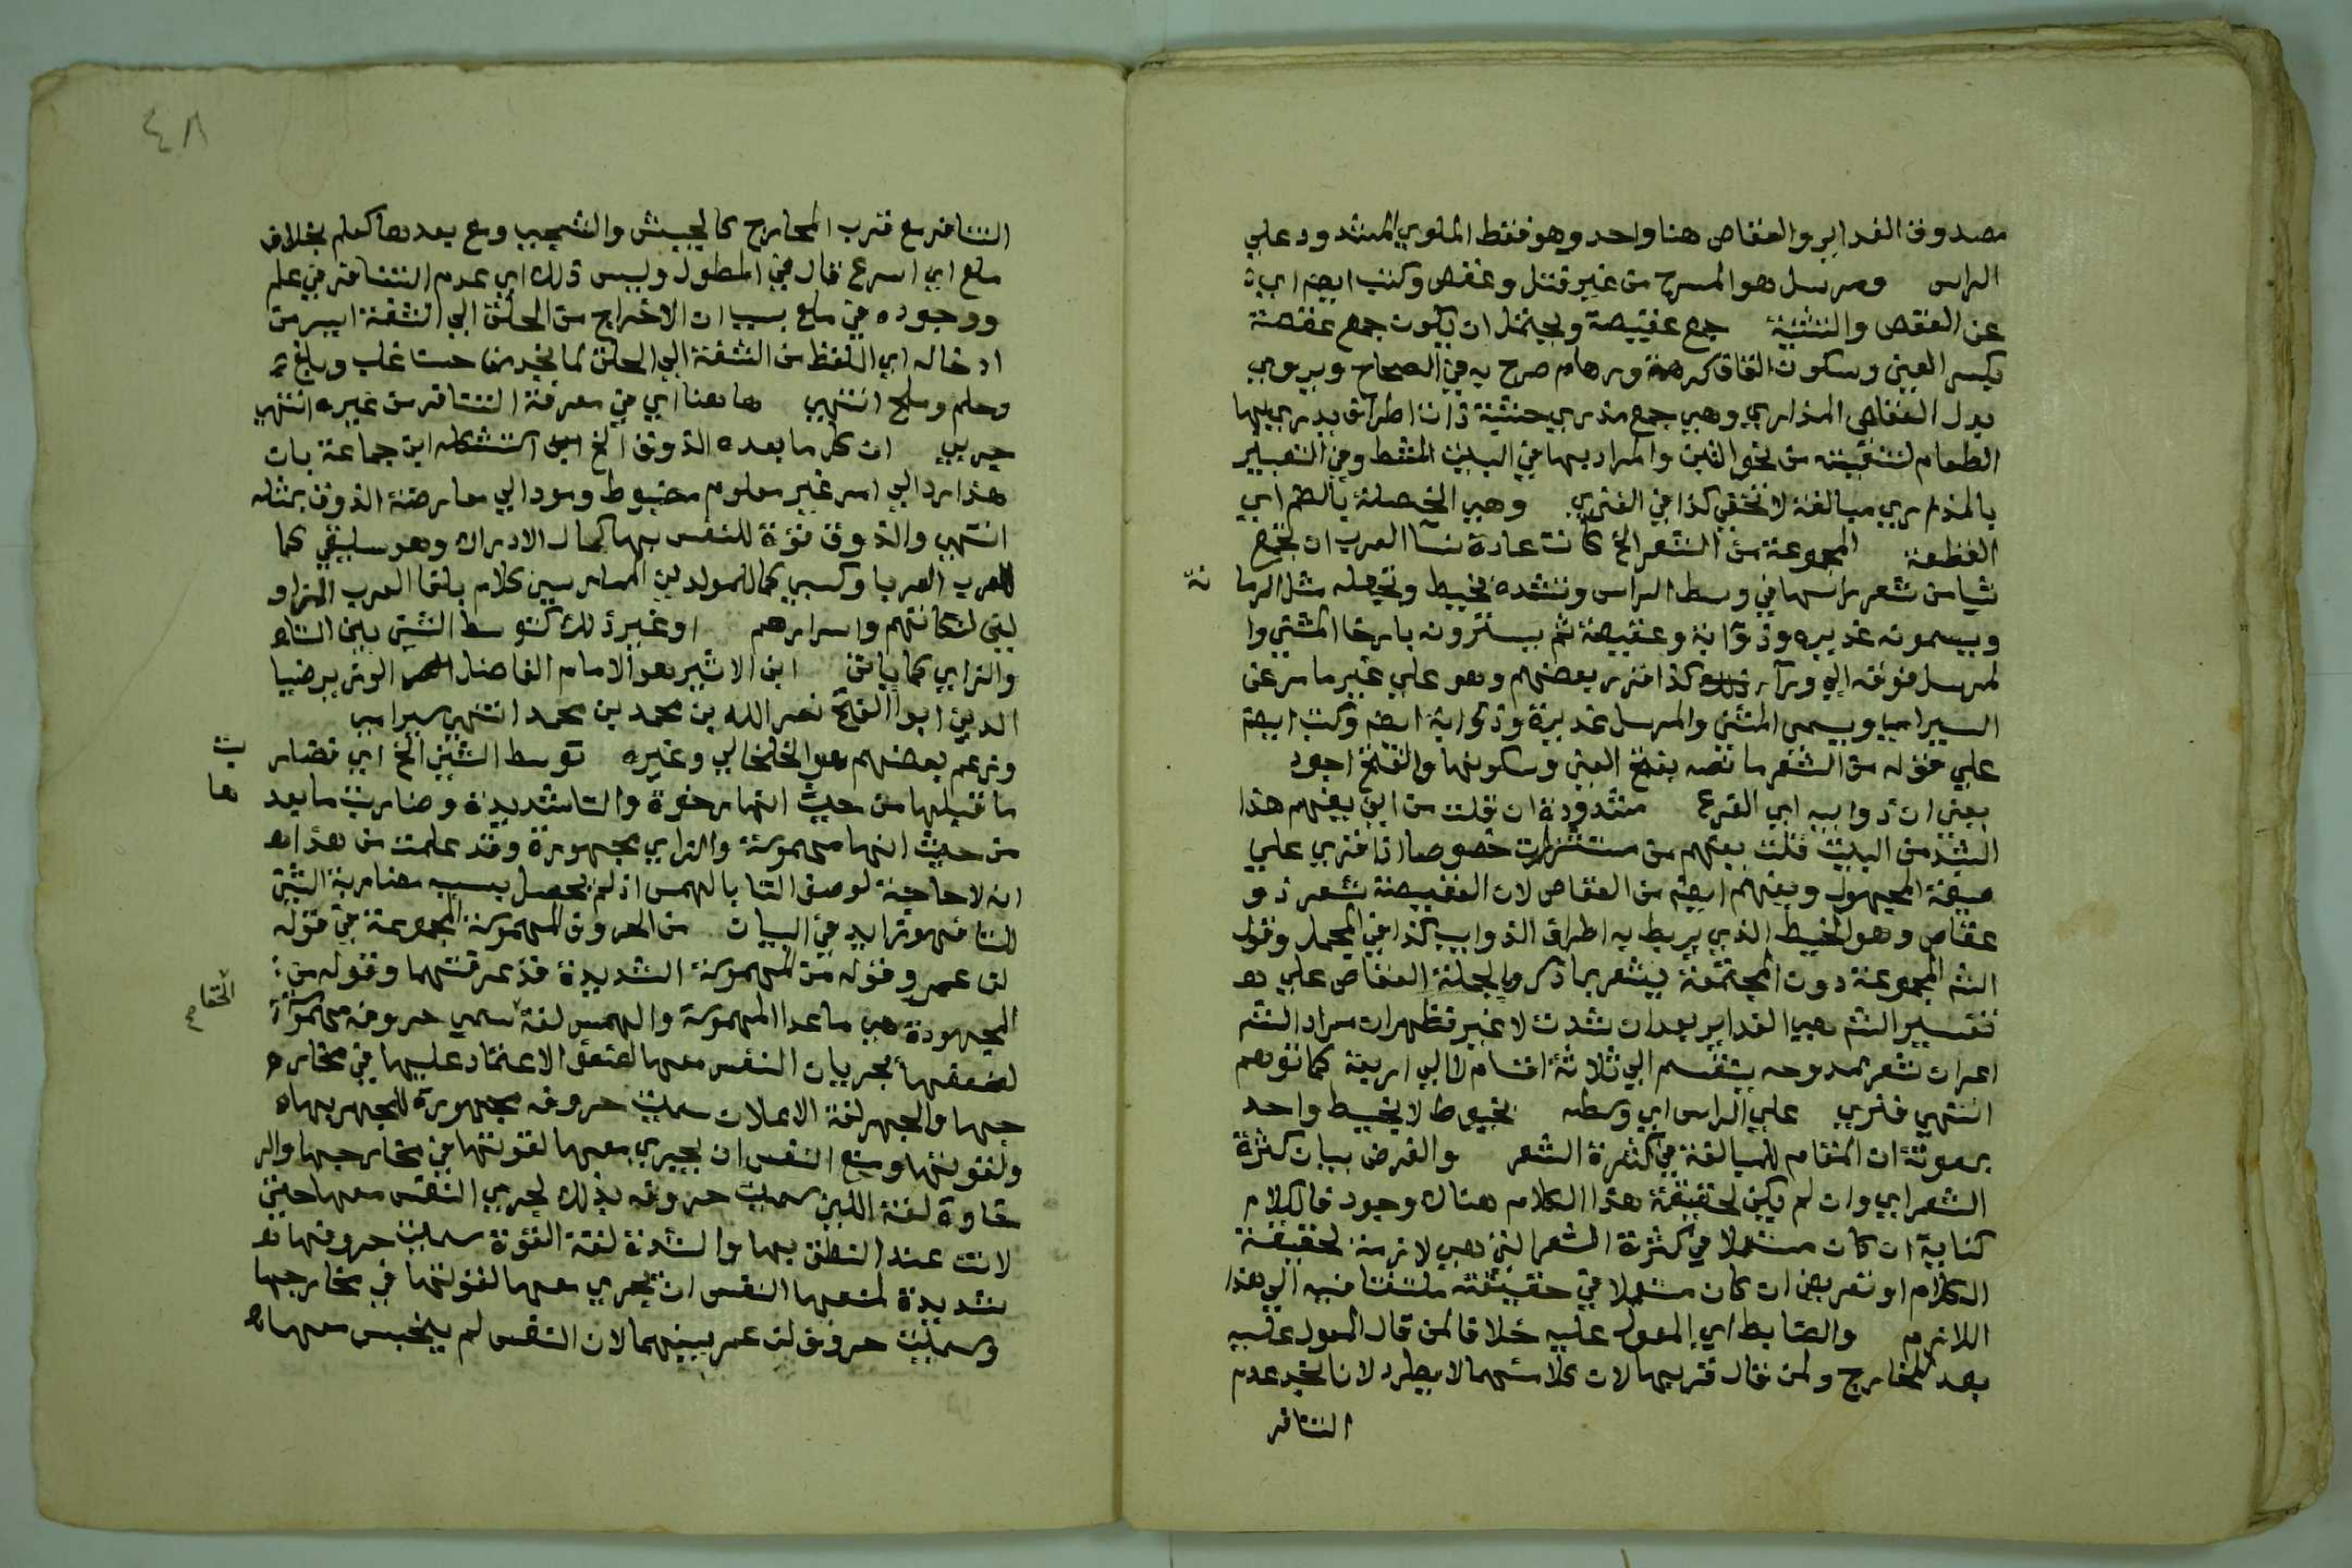 مصدوق الغداير والعقاص هنا واحد وهو فقط الملوي المشدود علي
الراس ومرسل هو المسرح من غير فتل وعقص وكتب ايضا اي
عن العقص والتثنية جمع عقيصة ويحتمل ان يكون جمع عقصة
بكسر العين وسكون القاف كرهمة ورهام صرح به في الصحاح ويروي
بدل العقاص المذاري وهي جمع مذري خشبة ذات اطراف يذري بها
الطعام لتنقيته من نحو التبن والمراد بها في البيت المشط وفي التعبير
بالمذاري مبالغة لا تخفي كذا في الفنري وهي الخصلة بالضم اي
القطعة المجموعة من الشعر الخ كانت عادة نسا العرب ان تجمع
شيا من شعر راسها في وسط الراس وتشده بخيط وتجعله مثل الرما نة
ويسمونه غديره وذوابة وعقيصة ثم يسترونه بارخا المثني وا
لمرسل فوقه الي ورآ كذا قرر بعضهم وهو علي غير ما مر عن
السيرامي ويسمي المثني والمرسل غديرة وذوابة ايضا وكتب ايضا
علي قوله من الشعر ما نصه بفتح العين وسكونها والفتح اجود
يعني ان ذوايبه اي الفرع مشدودة ان قلت من اين يفهم هذا
الشد من البيت قلت يفهم من مستشزرات خصوصا اذا قري علي
صيغة المجهول ويفهم ايضا من العقاص لان العقيصة شعر ذو
عقاص وهو الخيط الذي يربط به اطراف الذوايب كذا في المجمل وقول
الش المجموعة دون المجتمعة يشعر بما ذكر وبالجملة العقاص علي
تفسير الش هي الغداير بعد ان شدت لا غير فظهر ان مراد الش
اعران شعر ممدوحه ينقسم الي ثلاثة اقسام لا الي اربعة كما توهم
انتهي فنري علي الراس اي وسطه بخيوط لا بخيط واحد
بمعونة ان المقام للمبالغة في كثرة الشعر والغرض بيان كثرة
الشعر اي وان لم يكن لحقيقة هذا الكلام هناك وجود فالكلام
كناية ان كان مستعملا في كثرة الشعر التي هي لازمة لحقيقة
الكلام او تعريض ان كان مستعملا في حقيقته ملتفتا فيه الي هذا
اللازم والضابط اي المعول عليه خلافا لمن قال المعول عليه
بعد المخارج ولمن قال قربها لان كلا منهما لا يطرد لانا نجد عدم
التنافر
٤٨
التنافر مع قرب المخارج كالجيش والشجي ومع بعدها كعلم بخلاف
ملع اي اسرع قال في المطول وليس ذلك اي عدم التنافر في علم
ووجوده في ملع بسبب ان الاخراج من الحلق الي الشفة ايسر من
ادخاله اي اللفظ من الشفة الي الحلق لما نجد من حسنا غلب وبلغ
وحلم وملح انتهي ها هنا اي في معرفة التنافر من غيره انتهي
جربي ان كل ما يعده الذوق الخ استشكله ابن جماعة بان
هذا رد الي امر غير معلوم مضبوط ويودي الي معارضة الذوق بمثله
انتهي والذوق قوة للنفس بها كمال الادراك وهو سليقي كما
للعرب العربا وكسبي كما للمولدين الممارسين كلام بلغا العرب المزاو
لين لنكاتهم واسرارهم او غير ذلك كتوسط الشين بين التاء
والزاي كما ياتي ابن الاثير هو الامام الفاضل الوزير ضيا
الدين ابوا الفتح نصر الله بن محمد بن محمد انتهي سيرامي
وزعم بعضهم هو الخلخالي وغيره توسط الشين الخ اي فضار بت
ما قبلها من حيث انها رخوة والتا شديدة وضاربت ما بعد ها
من حيث انها مهموسة والزاي مجهورة وقد علمت من هذا
انه لا حاجة لوصف التا بالهمس اذ لم يحصل بسببه مضاربة الشين
للتا فهو زايد في البيان من الحروف المهموسة المجموعة في قوله
لن عمر وقوله من المهموسة الشديدة قد عرفتهما وقوله من
المجهورة هي ما عدا المهموسة والهمس لغة الخفا سمي حروفه مهموسة
لضعفها بجريان النفس معها لضعف الاعتماد عليها في مخار
جها والجهر لغة الاعلان سميت حروفه مجهورة للجهر بها
ولقوتها ومنع النفس ان يجري معها لقوتها في مخارجها والر
خاوة لغة اللين سميت حروفه بذلك لجري النفس معها حتي
لانت عند النطق بها والشدة لغة القوة سميت حروفها
شديدة لمنعها النفس ان يجري معها لقوتها في مخارجها
وسميت حروف لن عمر بينهما لان النفس لم ينحبس معها